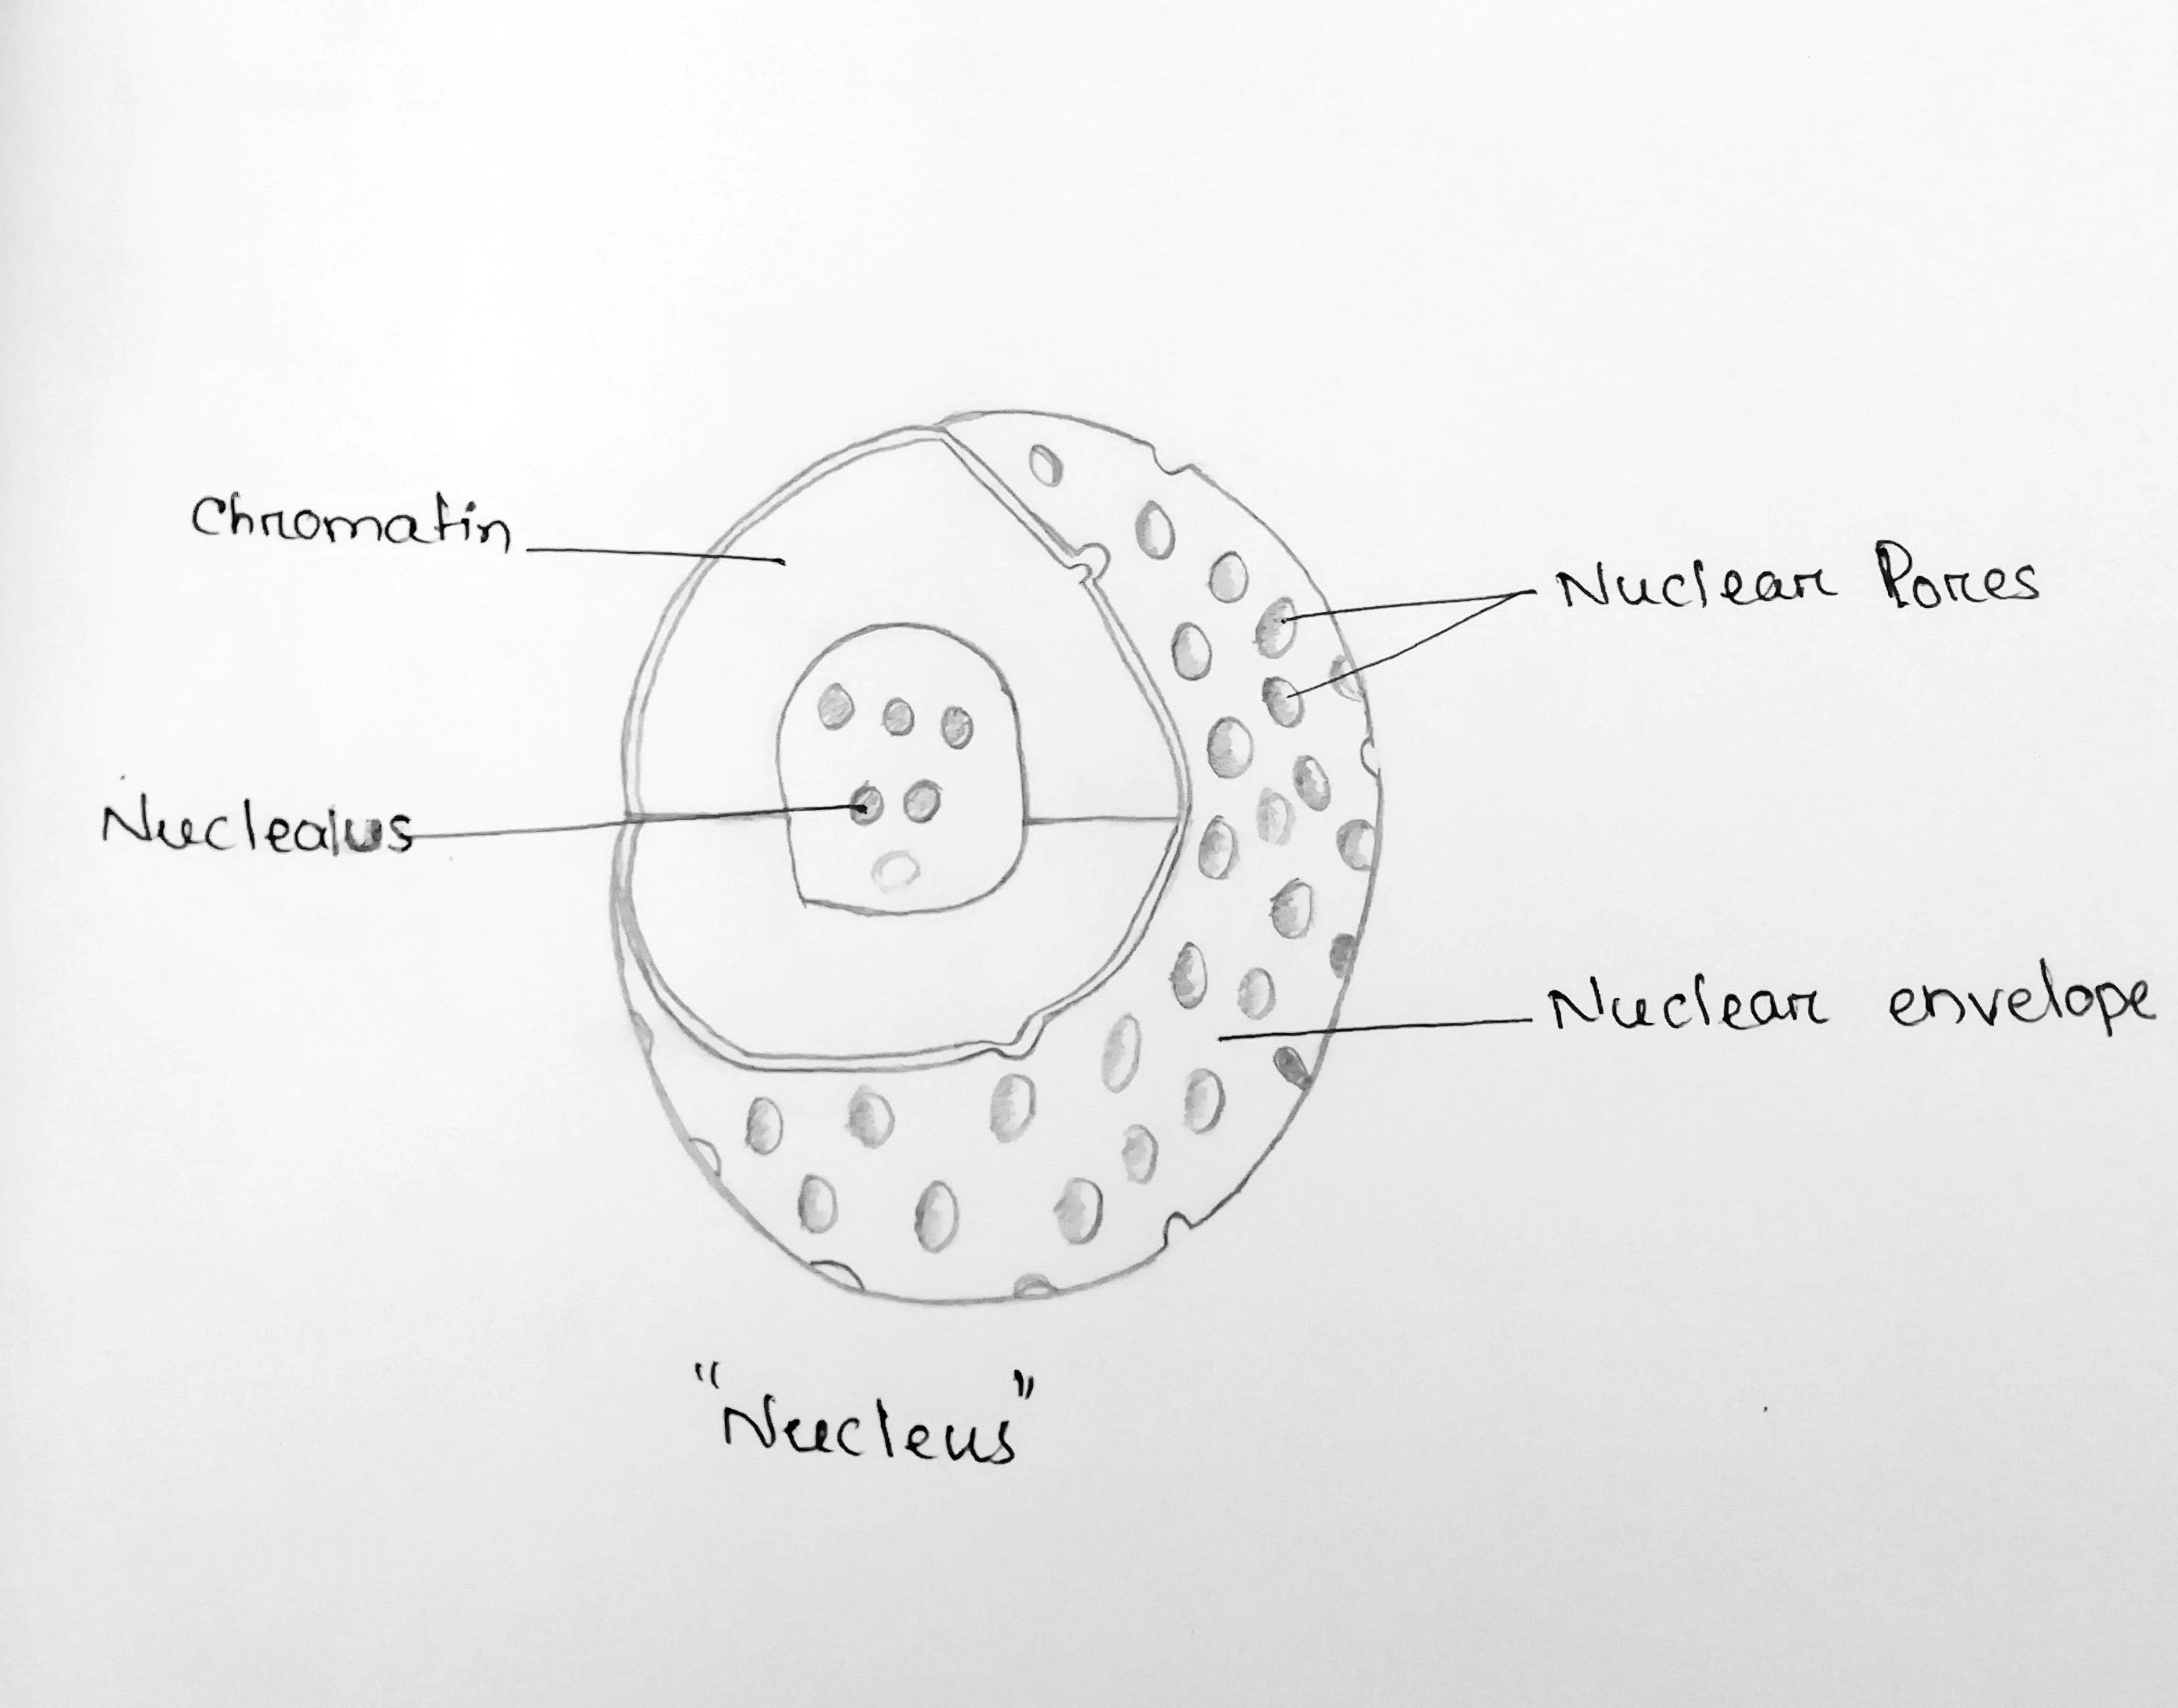 Chromatin
Nuclear Pores
Nuclealus
Nuclear envelope
"Nucleus"